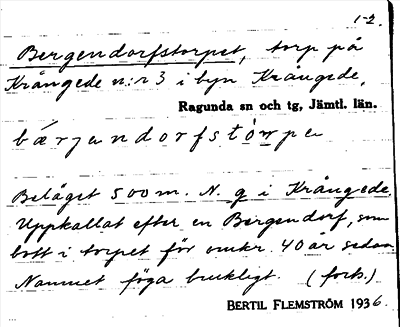 1-2.
Bergendorfstorpet, torp på
Krångede n:r 3 i byn Krångede,
Ragunda sn och tg, Jämtl. län.
bärjandorfstòrpa
Beläget 500 m. N. g i Krångede.
Uppkallat efter en Bergendorf, som
bott i torpet för omkr. 40 år sedan
Namnet föga brukligt. (forts.)
BERTIL FLEMSTRÖM 1936.